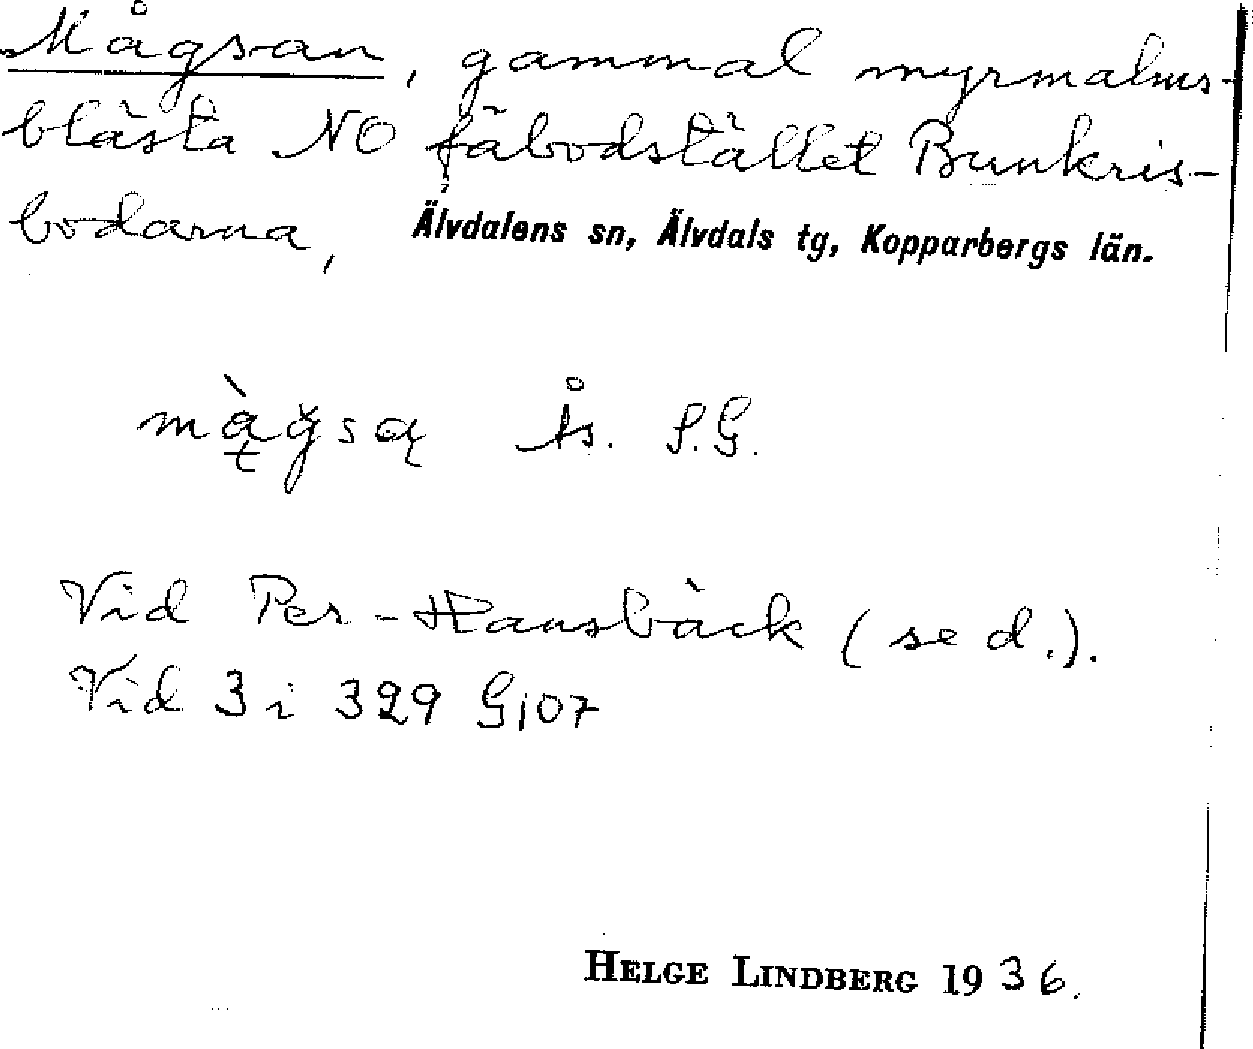 Mågsan, gammal myrmalms-
blästa NO fäbodstället Bunkris-
bodarna, Älvdalens sn, Älvdals tg, Kopparbergs län.
Ås. S.G.
Vid Per-Hansbäck (se d.).
Vid 3 i 329 G107
HELGE LINDBERG 1936.